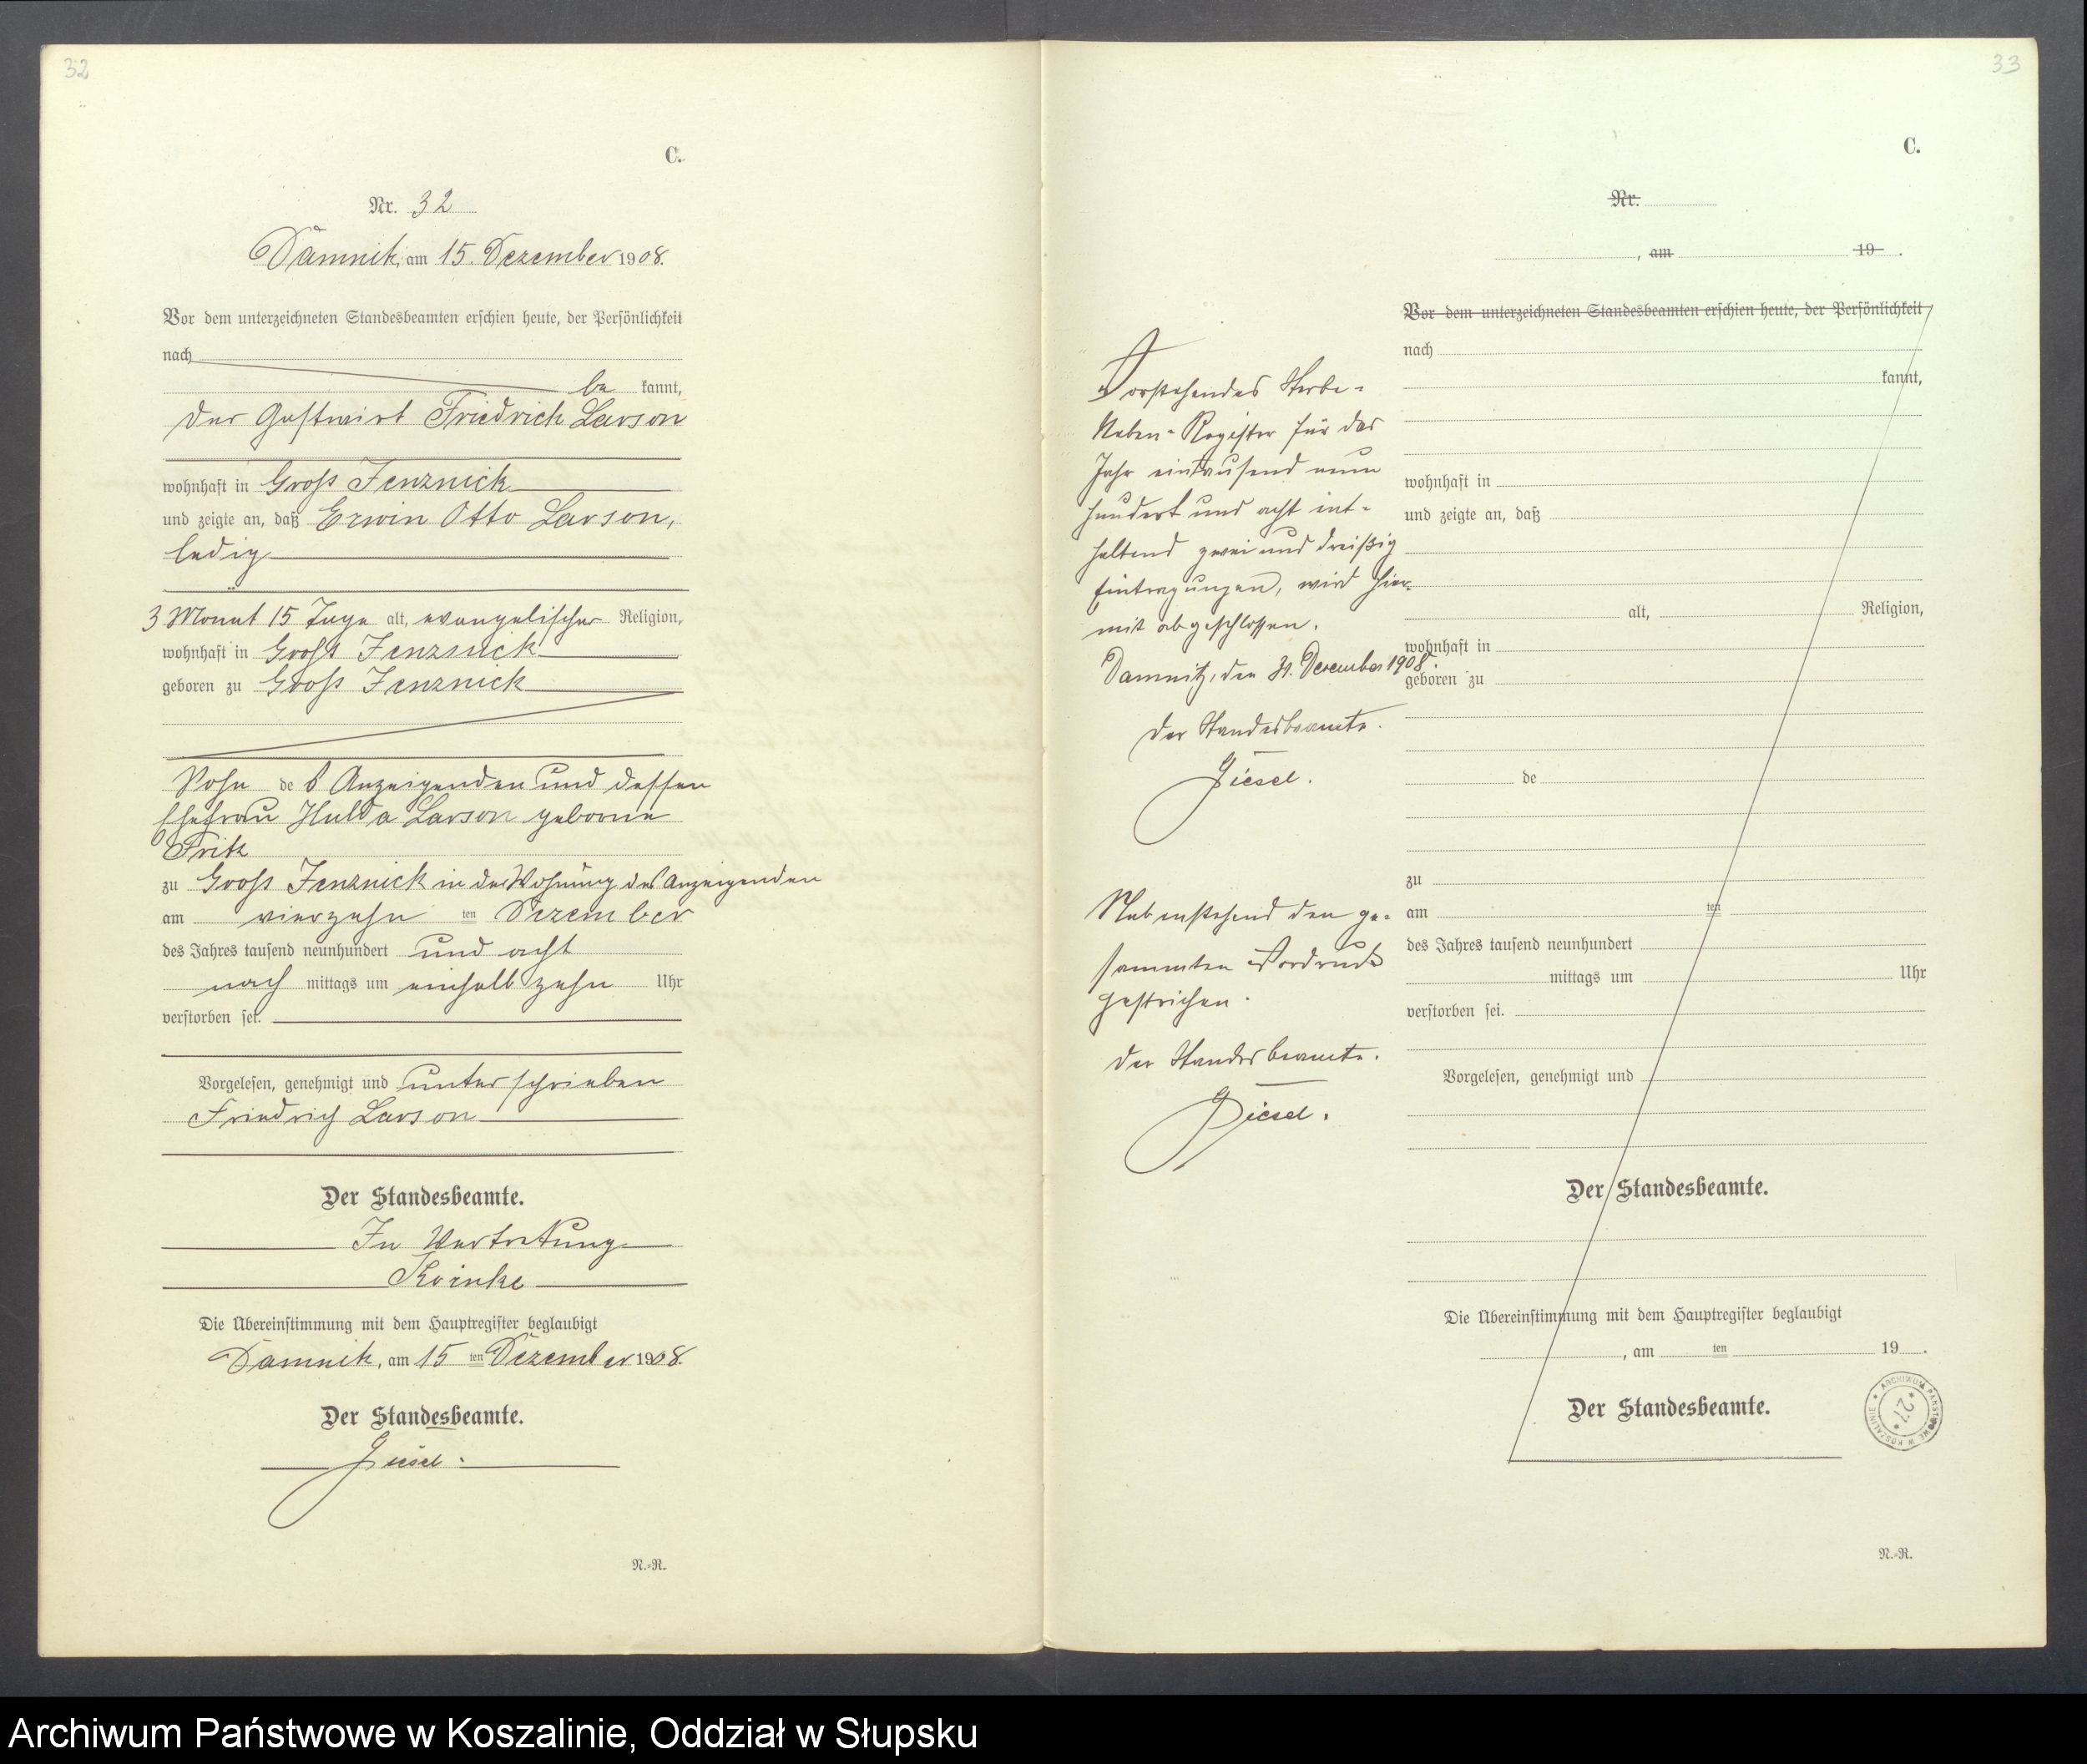 32
C.
Nr. 32
Damnitz, am 15. Dezember 1908.
Vor dem unterzeichneten Standesbeamten erschien heute, der Persönlichkeit
nach
be kannt,
der Gastwirt Friedrich Larson
wohnhaft in Groß Jenznick
und zeigte an, daß Erwin Otto Larson,
ledig
3 Monat 15 Tage alt, evangelischer Religion,
wohnhaft in Groß Jenznick
geboren zu Groß Jenznick
Sohn de s Anzeigenden und dessen
Ehefrau Hulda Larson geborne
Fritz
zu Groß Jenznick in der Wohnung des Anzeigenden
am vierzehn ten Dezember
des Jahres tausend neunhundert und acht
nach mittags um einhalb zehn Uhr
verstorben sei.
Vorgelesen, genehmigt und unterschrieben
Friedrich Larson
Der Standesbeamte.
In Vertretung
Die Übereinstimmung mit dem Hauptregister beglaubigt
Damnitz, am 15 ten Dezember 1908.
Der Standesbeamte.
Giesel.
N.-R.
33
C.
Nr.
, am 19 .
Vorstehendes Sterbe-
Neben-Register für das
Jahr eintausend neun
hundert und acht ent-
haltend zwei und dreißig
Eintragungen, wird hier-
mit abgeschlossen.
Damnitz, den 31. Dezember 1908.
Der Standesbeamte.
Giesel.
Nebenstehend den ge-
sammten Vordruck
gestrichen.
Der Standesbeamte.
Giesel.
Vor dem unterzeichneten Standesbeamten erschien heute, der Persönlichkeit
nach
kannt,
wohnhaft in
und zeigte an, daß
alt, Religion,
wohnhaft in
geboren zu
de
zu
am ten
des Jahres tausend neunhundert
mittags um Uhr
verstorben sei.
Vorgelesen, genehmigt und
Der Standesbeamte.
Die Übereinstimmung mit dem Hauptregister beglaubigt
, am ten 19 .
Der Standesbeamte.
ARCHIWUM PAŃSTWOWE W KOSZALINIE
*27*
N.-R.
Archiwum Państwowe w Koszalinie, Oddział w Słupsku